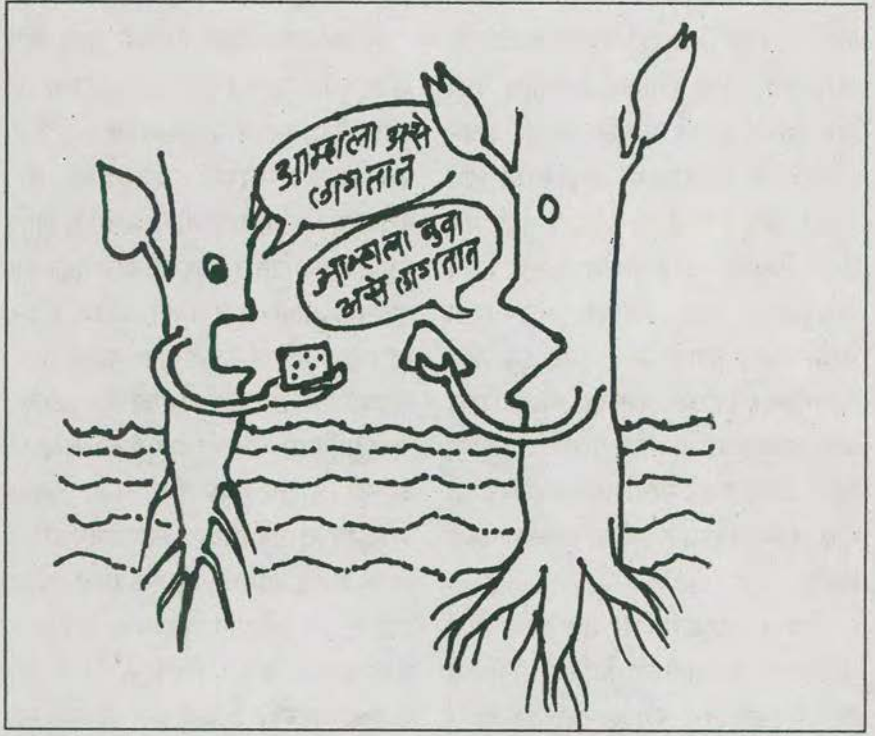 आम्हाला असे
लागतात
आम्हाला बुवा
असे लागतात